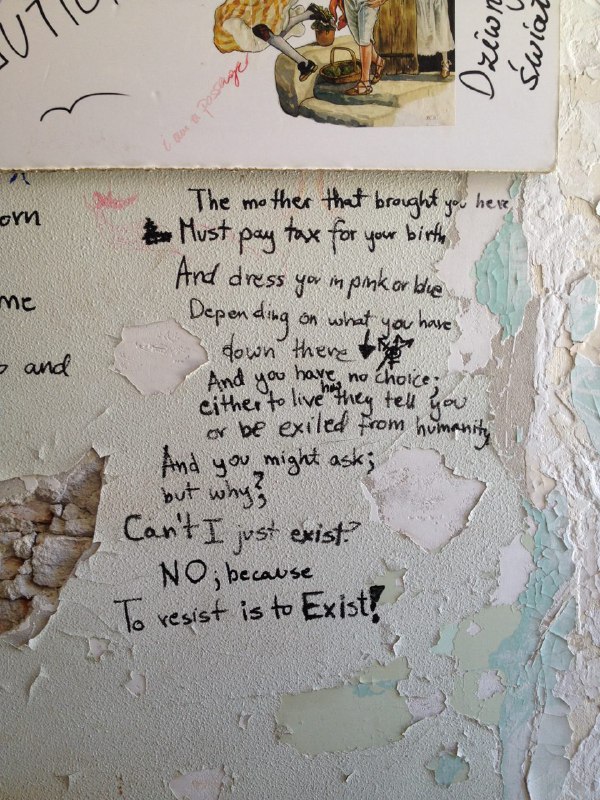 UTION
i am a passenger
Dziwny
świat
orn
me
and
The mother that brought you here
Must pay tax for your birth
And dress you in pink or blue
Depending on what you have
down there
And you have no choice;
either to live how they tell you
or be exiled from humanity
And you might ask;
but why?;
Can't I just exist?
NO; because
To resist is to Exist!